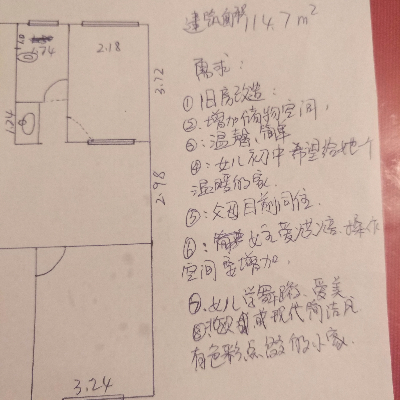 建筑面积114.7m²
需求：
①旧房改造：
②.增加储物空间，
③：温馨、简单
④：女儿初中希望给她一个
温暖的家.
⑤：父母目前同住.
⑥：女主爱烘焙、操作
空间要增加.
⑦.女儿学舞蹈、爱美
⑧北欧或现代简洁风
有色彩点缀的小家.
2.18
3.72
1.24
2.98
3.24